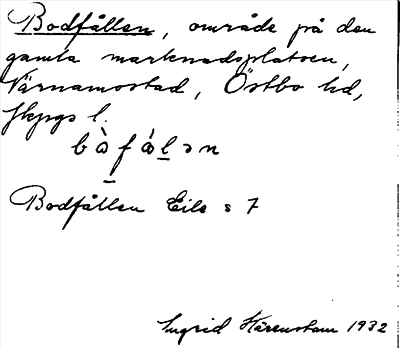 Bodfållen, område på den
gamla marknadsplatsen,
Värnamostad, Östbo hd,
Jkpgs l.
bàfálən
Bodfållen Eile s 7
Ingrid Härenstam 1932